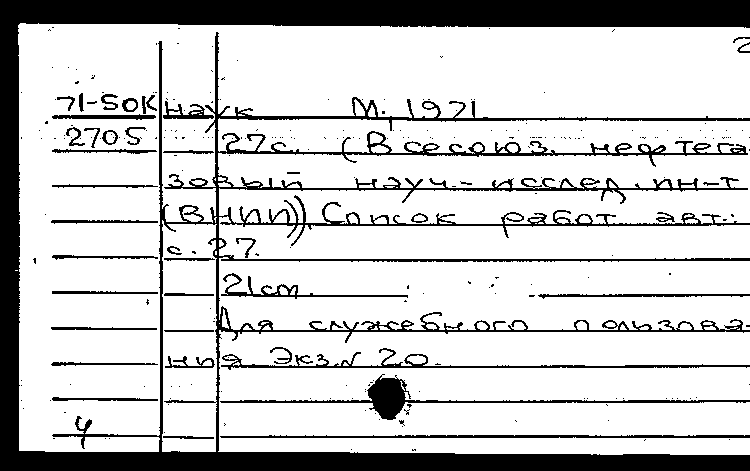 2
71-50К наук М., 1971.
2705 27с. (Всесоюз. нефтега-
зовый науч.-исслед. ин-т
(ВНИИ)). Список работ авт.:
с. 27.
21см.
Для служебного пользова-
ния Экз.N 20.
4